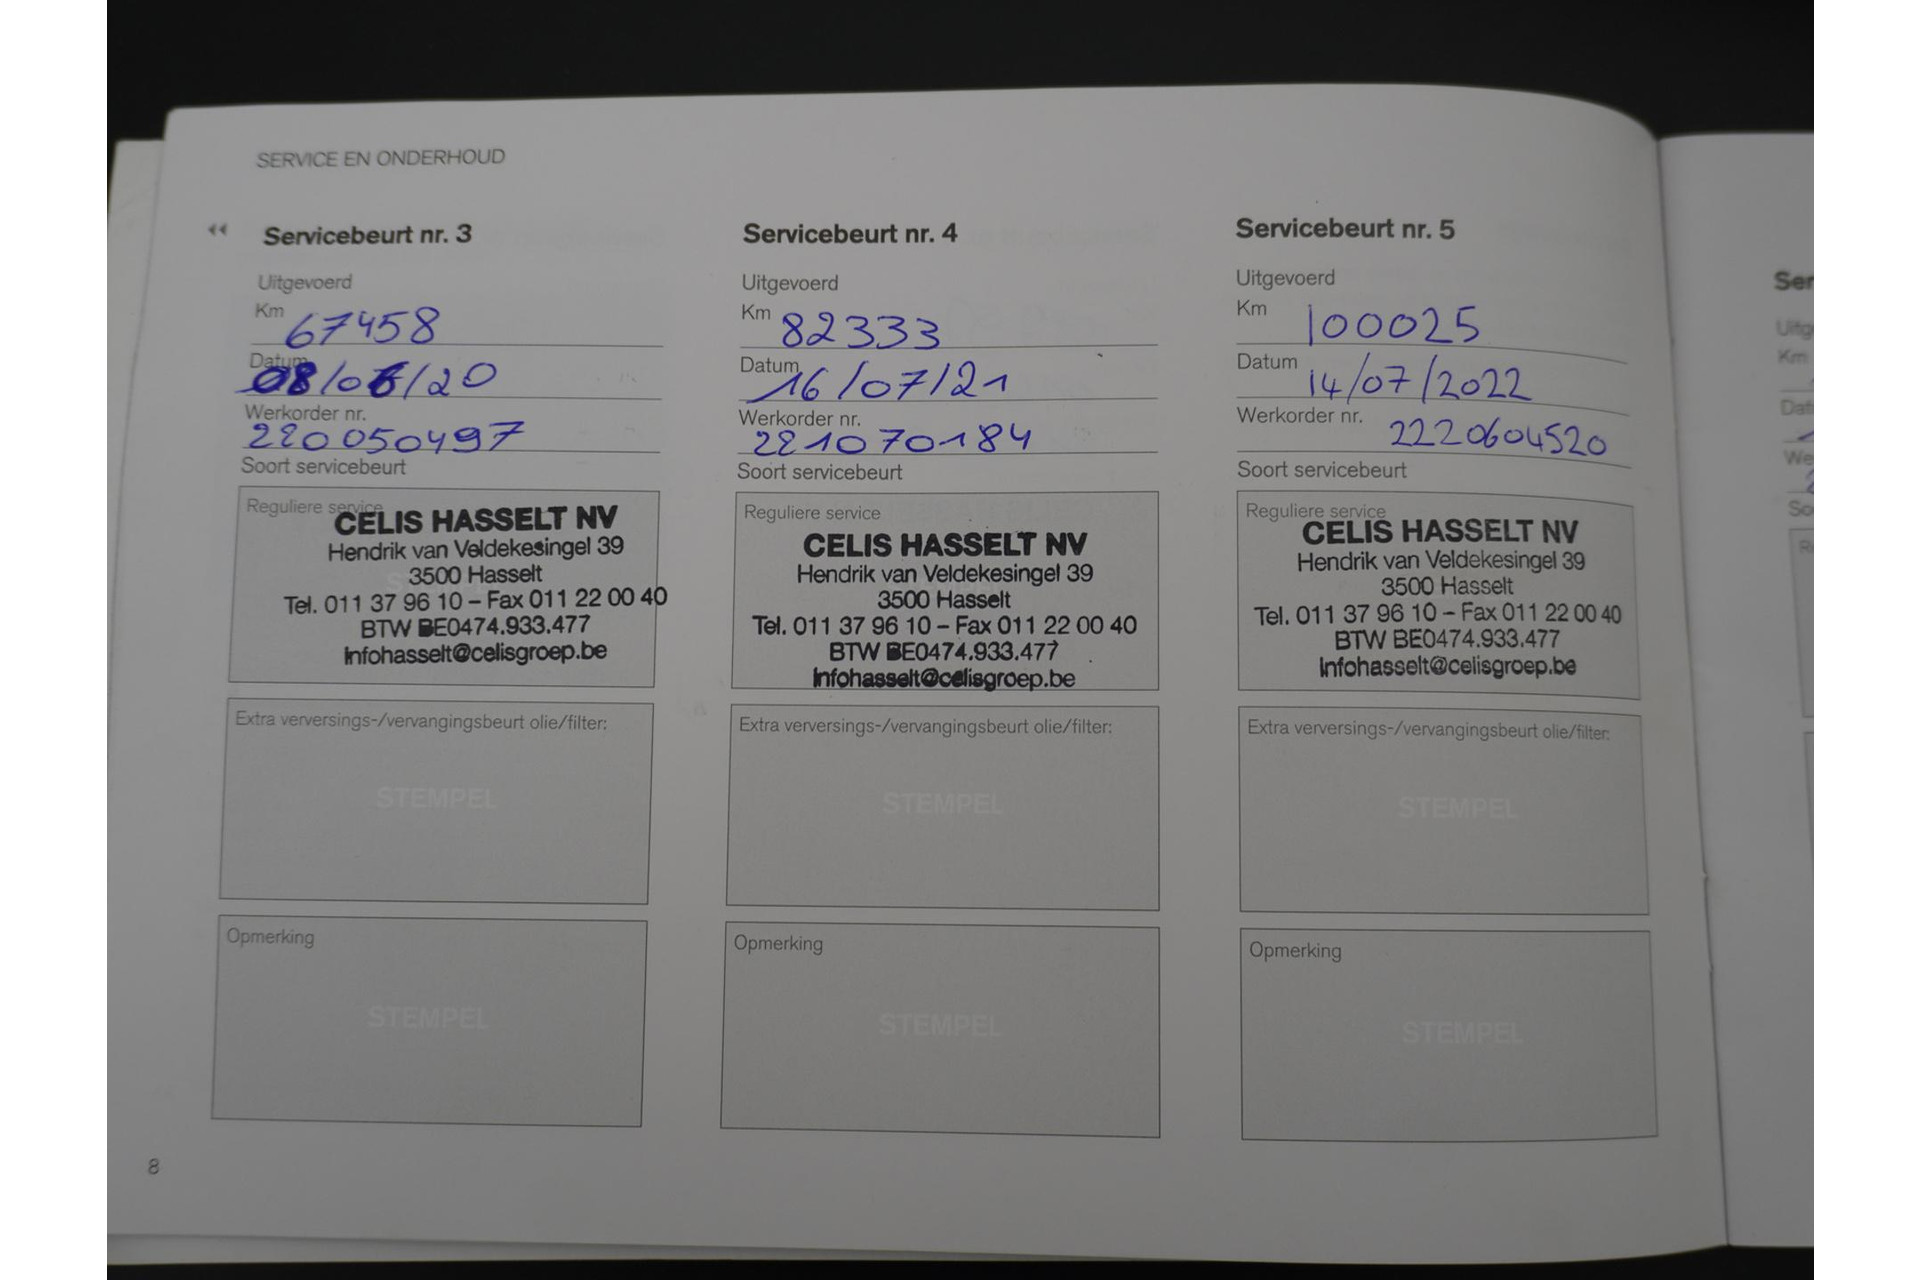 SERVICE EN ONDERHOUD
Servicebeurt nr. 3
Uitgevoerd
Km 67458
Datum 08/06/20
Werkorder nr.
220050497
Soort servicebeurt
Reguliere service
CELIS HASSELT NV
Hendrik van Veldekesingel 39
3500 Hasselt
Tel. 011 37 96 10 – Fax 011 22 00 40
BTW BE0474.933.477
Infohasselt@celisgroep.be
Extra verversings-/vervangingsbeurt olie/filter:
STEMPEL
Opmerking
STEMPEL
Servicebeurt nr. 4
Uitgevoerd
Km 82333
Datum 16/07/21
Werkorder nr.
221070184
Soort servicebeurt
Reguliere service
CELIS HASSELT NV
Hendrik van Veldekesingel 39
3500 Hasselt
Tel. 011 37 96 10 – Fax 011 22 00 40
BTW BE0474.933.477
Infohasselt@celisgroep.be
Extra verversings-/vervangingsbeurt olie/filter:
STEMPEL
Opmerking
STEMPEL
Servicebeurt nr. 5
Uitgevoerd
Km 100025
Datum 14/07/2022
Werkorder nr. 2220604520
Soort servicebeurt
Reguliere service
CELIS HASSELT NV
Hendrik van Veldekesingel 39
3500 Hasselt
Tel. 011 37 96 10 – Fax 011 22 00 40
BTW BE0474.933.477
Infohasselt@celisgroep.be
Extra verversings-/vervangingsbeurt olie/filter:
STEMPEL
Opmerking
STEMPEL
8
Km